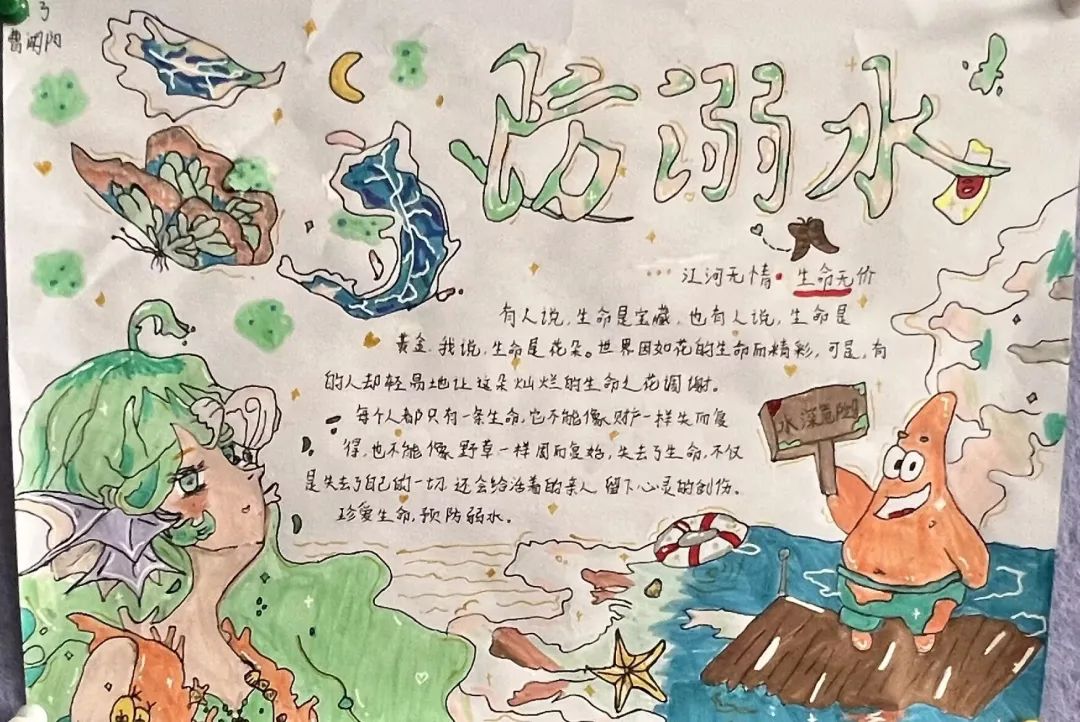 3
防溺水
江河无情·生命无价
有人说,生命是宝藏,也有人说,生命是
黄金.我说,生命是花朵。世界因如花的生命而精彩,可是,有
的人却轻易地让这朵灿烂的生命之花凋谢。
每个人都只有一条生命,它不能像财产一样失而复
得,也不能像野草一样周而复始,失去了生命,不仅
是失去了自己的一切.还会给活着的亲人留下心灵的创伤。
珍爱生命,预防弱水。
水深危险!